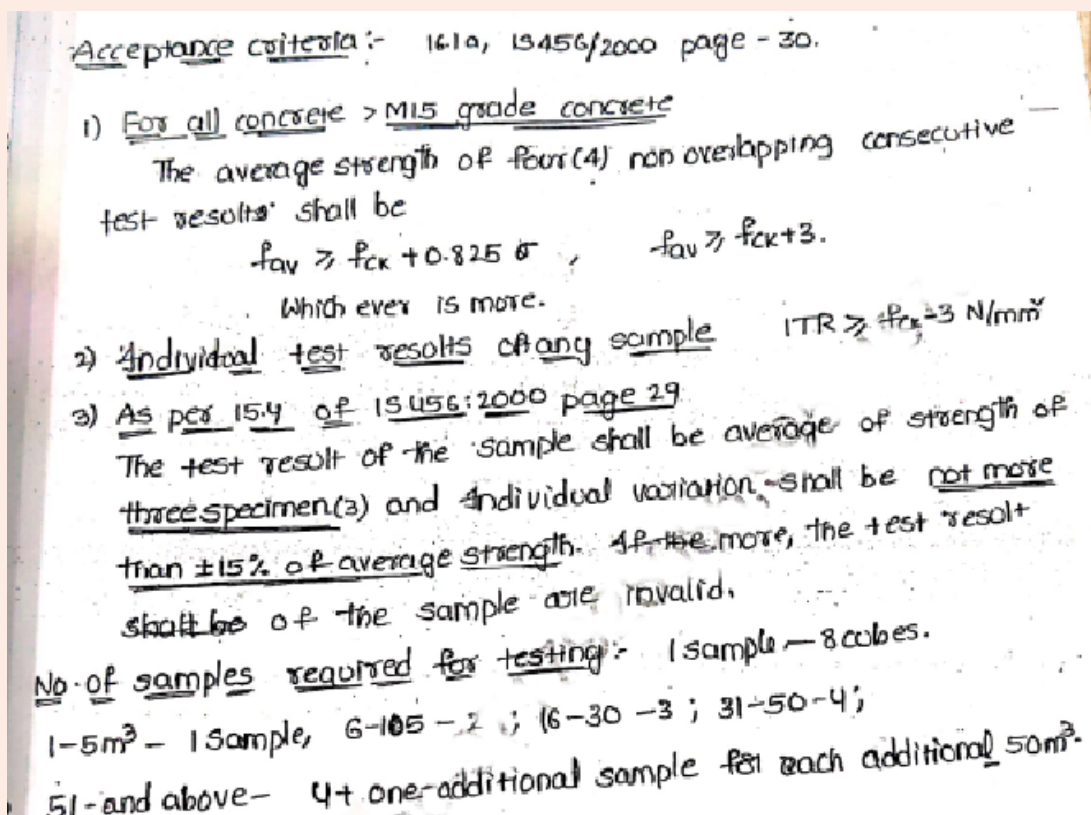 Acceptance criteria :- 16.1a, IS456/2000 page - 30.
1) For all concrete > M15 grade concrete
The average strength of four (4) non overlapping consecutive
test results shall be
fav ≥ fck + 0.825 σ , fav ≥ fck+3.
Which ever is more.
2) Individual test results of any sample ITR ≥ fck-3 N/mm²
3) As per 15.4 of IS456:2000 page 29
The test result of the sample shall be average of strength of
three specimen(3) and individual variation shall be not more
than ±15% of average strength. If the more, the test result
shall be of the sample are invalid.
No. of samples required for testing:- 1 sample - 8 cubes.
1-5m³ - 1 Sample, 6-105 - 2 ; 16-30 -3 ; 31-50-4;
51-and above- 4+ one-additional sample for each additional 50m³.